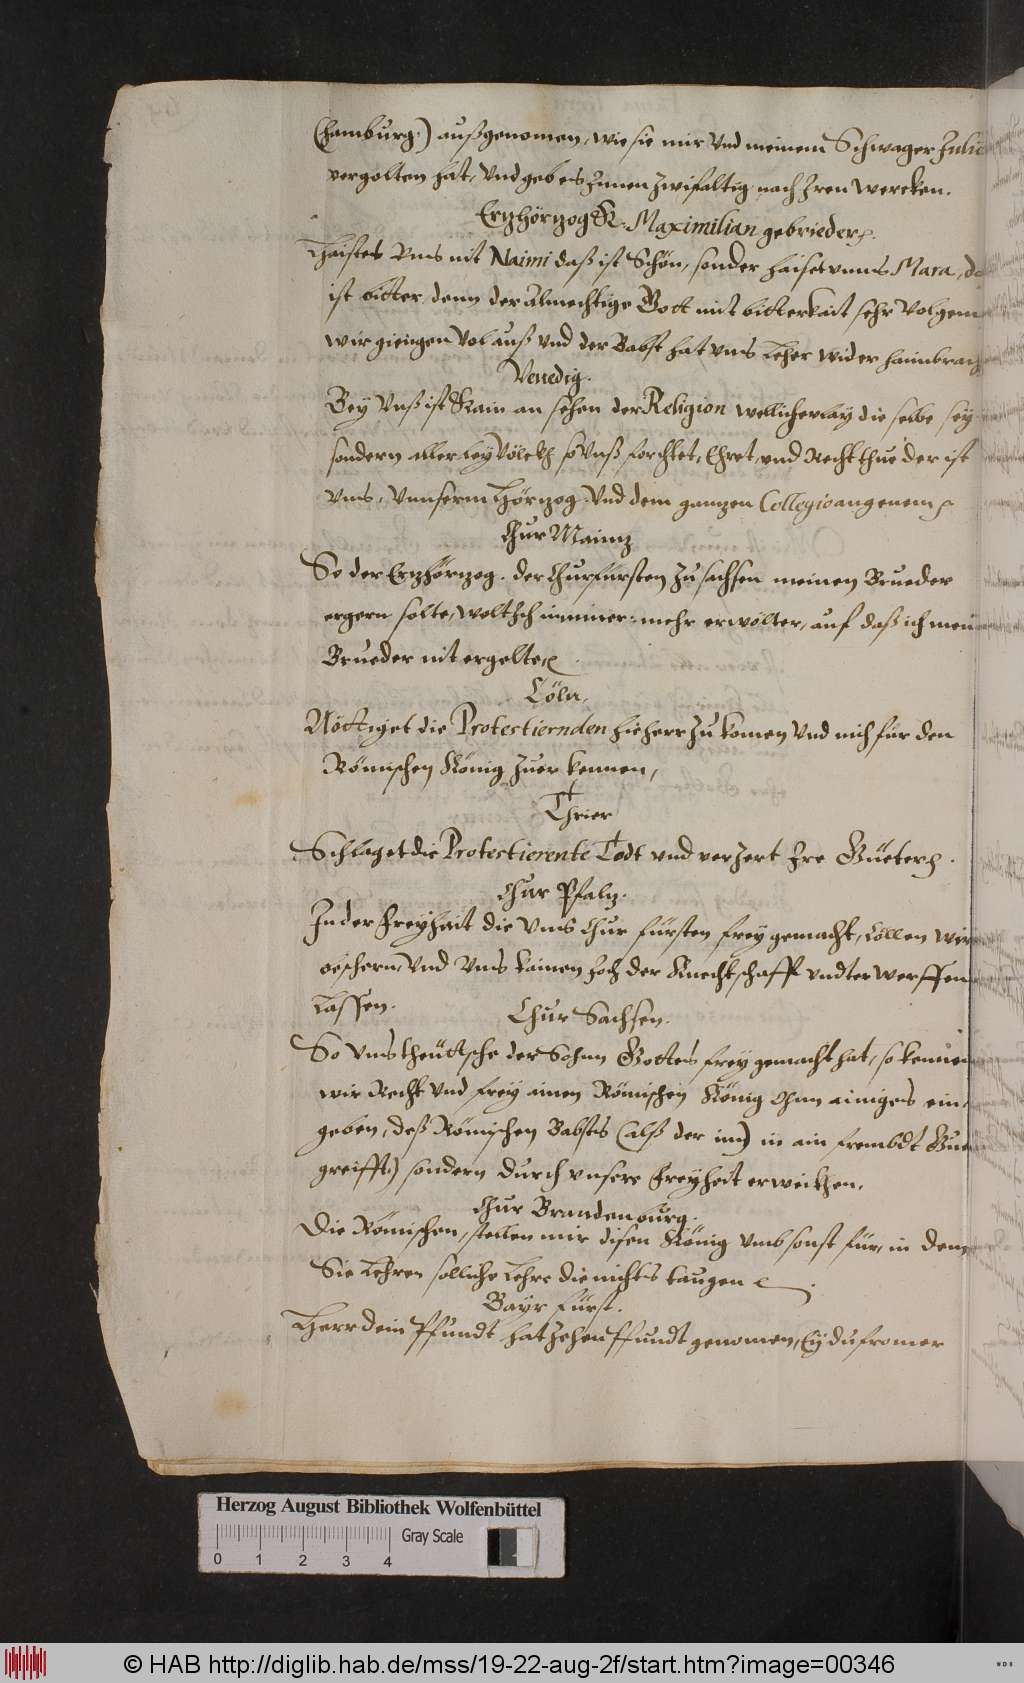 (Hamburg.) außgenomen, wie sie mir Vnd meinem Schwager Julio
vergolten hat, Vnd gebeis Innen Zwifaltig nach Iren wercken.
Ertzhörtzog K. Maximilian gebrieder.
Haistes Vns nit Naimi daß ist Schön, sonder haiset vnns Mara, d
ist bitter, denn der Almechtige Gott mit bitterkait sehr
wir giengen Vol auß Vnd der Babst hat vns Leher wider haimbrac
Venedig.
Bey Vnß ist Kain an sehen der Religion wellicherlay die selbe sey
sondern aller ley Völckh so Vnß forchtet, Ehret vnd Recht thue der ist
Vns, Vnnserm Hörtzog Vnd dem gantzen Collegio angenem
Chur Maintz
So der Ertzhörtzog. der Churfürsten Zu sachsen meinen Brueder
ergern solte, wolt Ich nimmer mehr erwölter, auf daß ich mein
Brueder nit ergelte.
Cöln.
Nöttiget die Protestiernden hieherr Zu komen Vnd mich für den
Römischen König Zuer kennen,
Thrier
Schlaget die Protestierente Todt vnd verZert Ire Güeter.
Chur Pfaltz.
In der Freyhait die Vns Chur fürsten frey gemacht, söllen wir
Vnd Vns kainen Joch der Knechtschafft vndter werffen
Lassen.
Chur Sachsen.
So Vns theüttsche der Sohnn Gottes frey gemacht hat, so kennen
wir Recht Vnd frey ainen Römischen König ohnn ainiges ein,
geben, deß Römischen Babsts (alß der im) in ain frembdt
greifft) sondern durch vnsere Freyheit
Chur Brandenburg.
Die Römischen, stellen mir disen König vmbsonst für, in dem
Sie Lehren solliche Lehre die nichts taugen
Bayr fürst.
Herr dein Pfundt hat Zehen Pfundt genomen, Ey du fromer
Herzog August Bibliothek Wolfenbüttel
Gray Scale
0 1 2 3 4
© HAB http://diglib.hab.de/mss/19-22-aug-2f/start.htm?image=00346